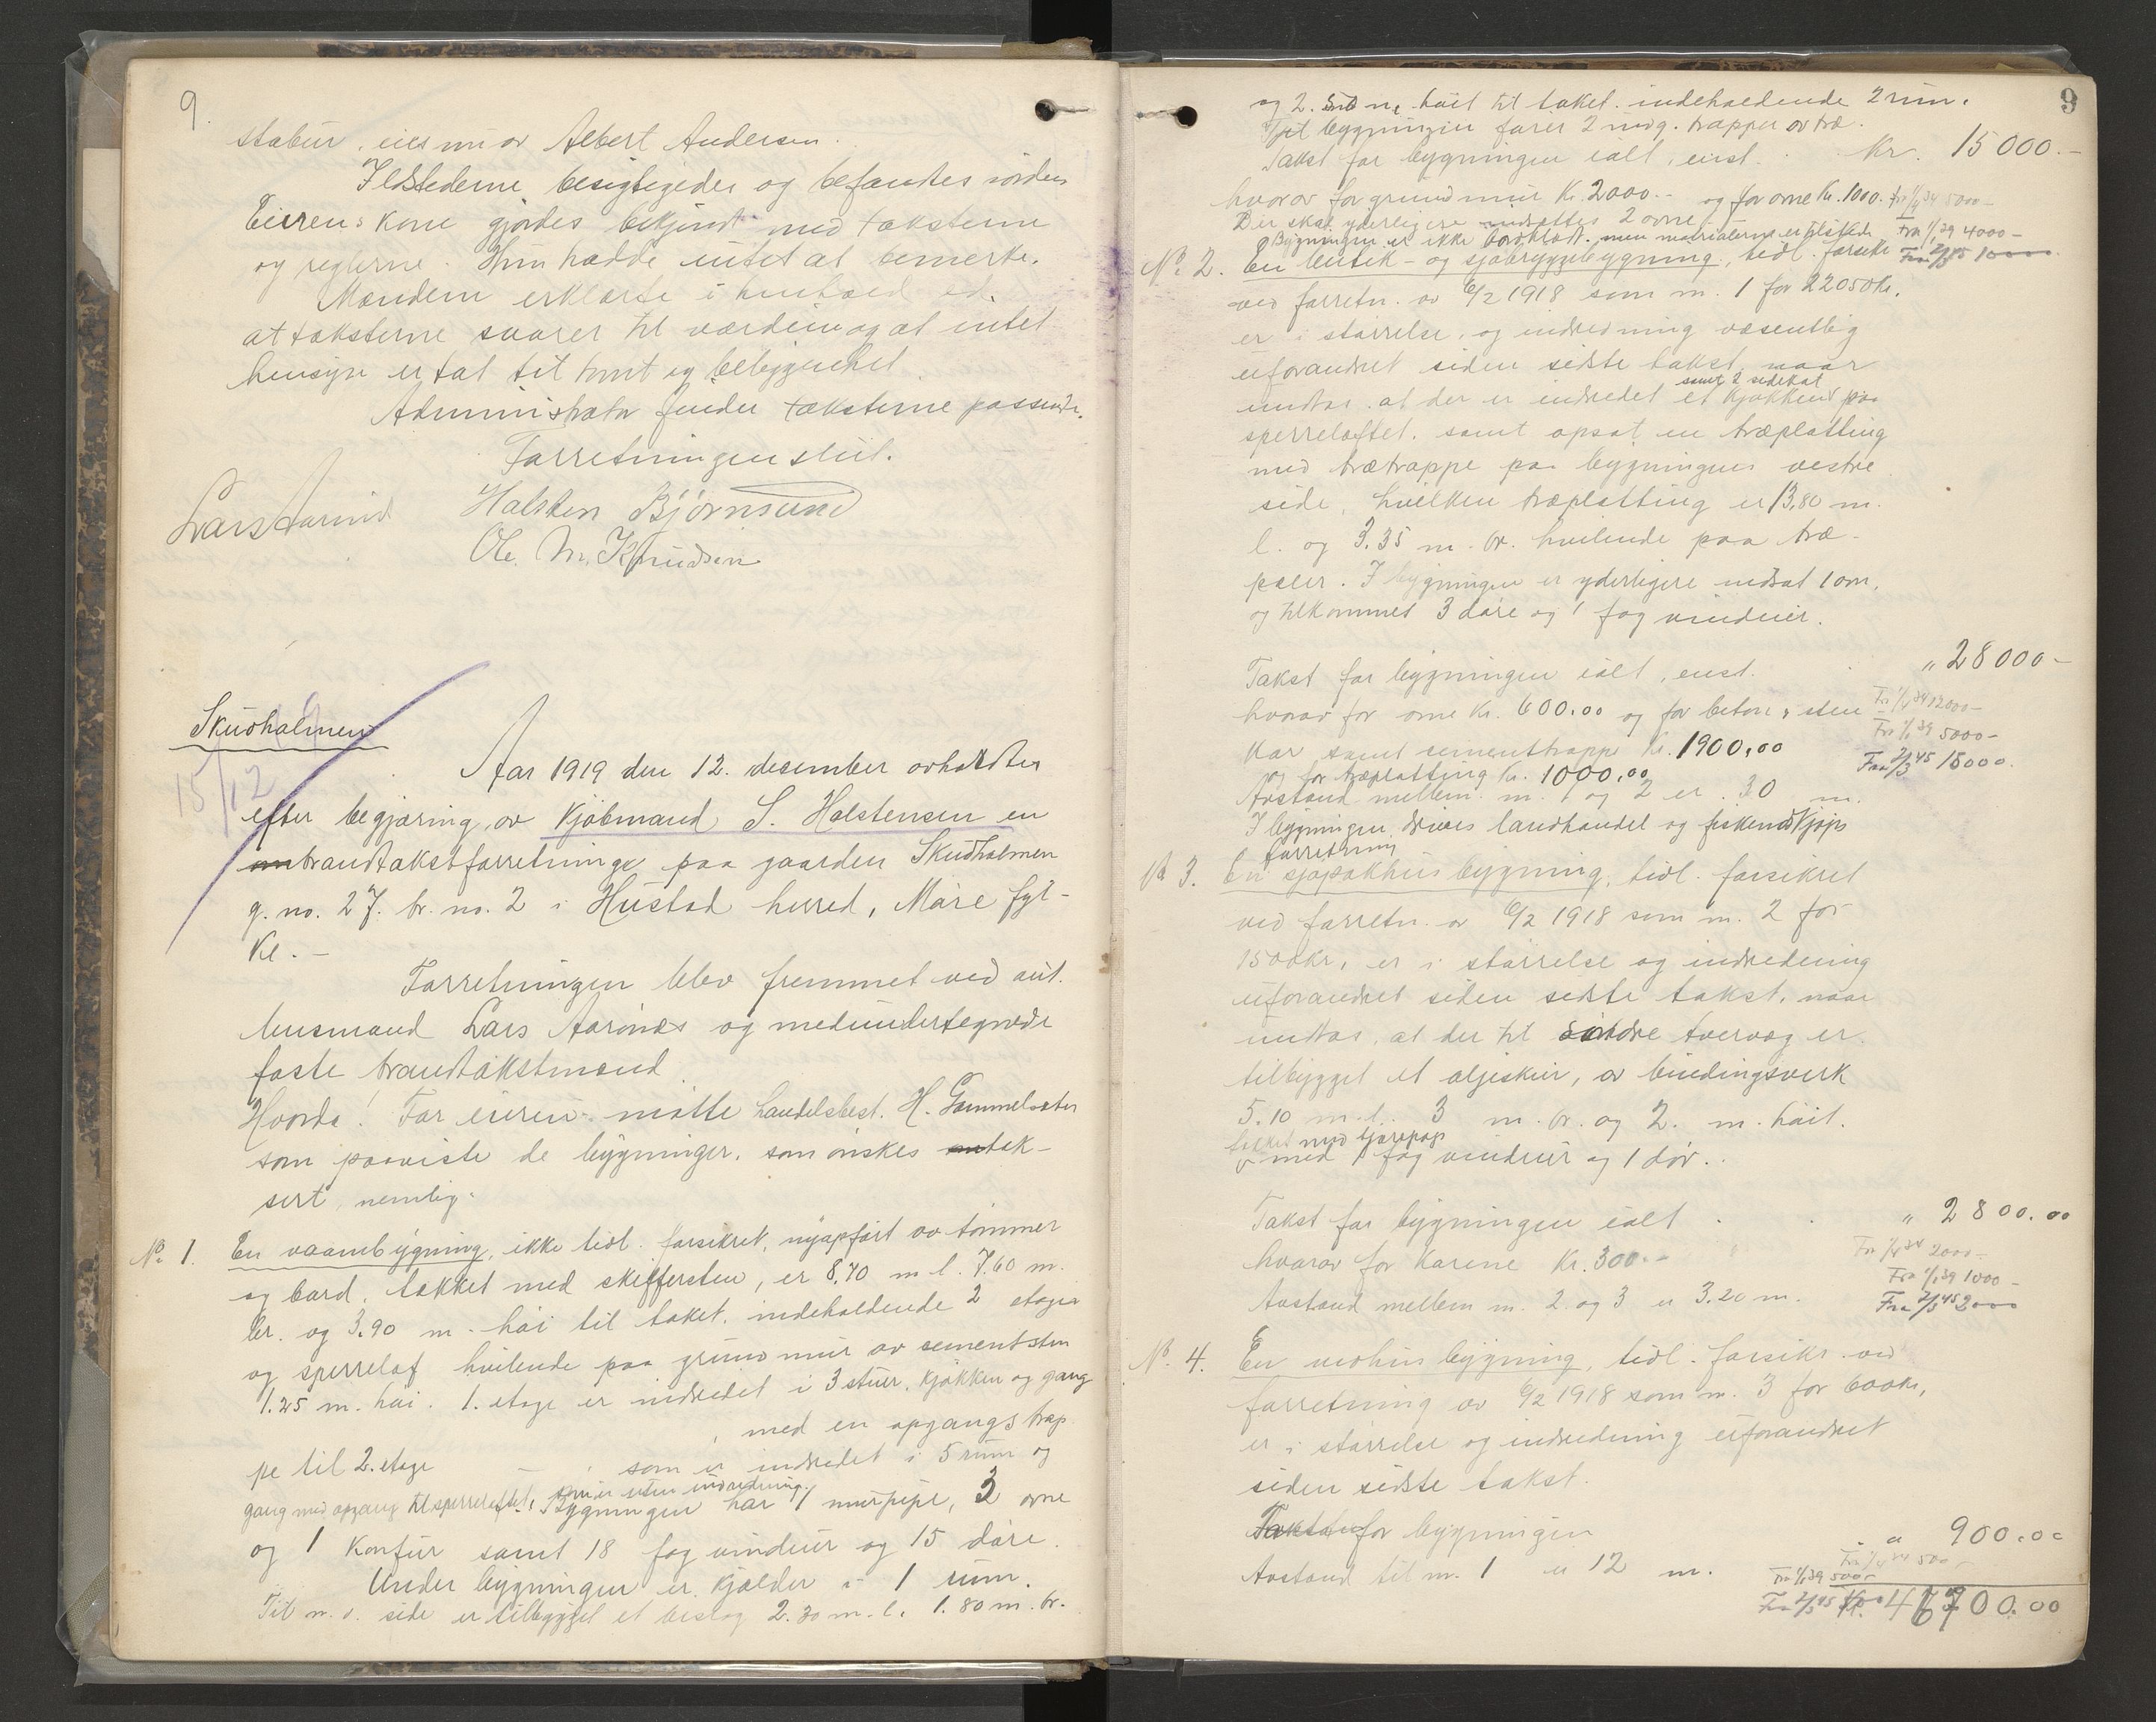 9.
stabur, eies nu av Albert Andersen.
Ildstederne besigtigedes og befandtes iorden
Eierens kone gjordes bekjendt med taksterne
og reglerne. Hun hadde intet at bemerke.
Mændene erklærte i henhold ed.
at taksterne svarer til værdien og at intet
hensyn er tat til tomt og beliggenhet.
Administrator finder taksterne passende.
Forretningen slut.
Halsten Bjørnsund
Ole M. Knudsen
Skudholmen
15/12
Aar 1919 den 12. december avholdtes
efter begjæring av kjøbmand S. Halstensen en
brandtakstforretning paa gaarden Skudholmen
g. no. 27. br. no. 2 i Hustad herred, Møre fyl-
ke.-
Forretningen blev fremmet ved aut.
lensmand Lars Aarønes og medundertegnede
faste brandtakstmænd.
Hvorda! For eieren møtte handelsbest. H. Gammelsæter
som paaviste de bygninger, som ønskes tak-
sert, nemlig:
No 1. En vaambygning, ikke tidl. forsikret, nyopført av tømmer
og bord, tækket med skiffersten, er 8.70 m l. 7.60 m.
br. og 3.90 m. høi til taket, indeholdende 2 etager
og sperreloft hvilende paa grundmur av sementsten
1.25 m. høi. 1. etage er indredet i 3 stuer, kjøkken og gang
, med en opgangstrap
pe til 2. etage som er indredet i 5 rum og
gang med opgang til sperreloftet, som er uten indredning. Bygningen har 1 murpipe, 3 ovne
og 1 komfur samt 18 fag vinduer og 15 døre.
Under bygningen er kjælder i 1 rum.
Til n. o. side er tilbygget et beslag 2.30 m. l. 1.80 m. br.
9
og 2. m. høit til taket indeholdende 2 rum.
Til bygningen fører 2 indg. trapper av træ.
Takst for bygningen ialt, enst. Kr. 15000.-
hvorav for grundmur Kr. 2000.- og for ovne Kr. 1000. Fra 1/4 34 5000-
Der skal yderligere indsættes 2 ovne. Fra 1/1 39 4000-
Bygningen er ikke bordklædt, men materialerne er tilstede
No. 2. En butik- og sjøbryggebygning, tidl. forsikr. Fra 2/3 45 10000.
ved forretn. av 6/2 1918 som nr. 1 for 22050 kr.
er i størrelse og indredning væsentlig
uforandret siden sidste takst, naar
undtas at der er indredet et kjøkken samt 2 sidekot paa
sperreloftet, samt opsat en træplatting
med trætrappe paa bygningens vestre
side, hvilken træplatting er 13,80 m.
l. og 3.35 m. br. hvilende paa træ-
pæler. I bygningen er yderligere indsat 1 ovn,
og tilkommet 3 døre og 1 fag vinduer.
Takst for bygningen ialt, enst. " 28000-
hvorav for ovne Kr. 600.00 og for beton & sten Fra 1/4 34 12000-
Fra 1/1 39 5000-
kar samt sementtrappe Kr. 1900,00
Fra 2/3 45 15000.
og for træplatting Kr. 1000,00
Avstand mellem nr. 1 og 2 er 30 m.
I bygningen drives landhandel og fiskeindkjøps
forretning
No 3. En sjøpakhusbygning, tidl. forsikret
ved forretn. av 6/2 1918 som nr. 2 for
1500 kr, er i størrelse og indredning
uforandret siden sidste takst, naar
undtas, at der til søndre tvervæg er
tilbygget et oljeskur, av bindingsverk
5.10 m. l. 3 m. br. og 2. m. høit.
tækket med tjærepap
med 1 fag vinduer og 1 dør.
Takst for bygningen ialt " 2800.00
hvorav for karene Kr. 300.- Fra 1/4 34 2000-
Fra 1/1 39 1000-
Avstand mellem nr. 2 og 3 er 3.20 m. Fra 2/3 45 2000
No. 4. En vedhusbygning, tidl. forsikr. ved
forretning av 6/2 1918 som nr. 3 for 600 kr,
er i størrelse og indredning uforandret
siden sidste takst.
Takst for bygningen " 900.00
Avstand til nr. 1 er 12 m.
Fra 1/4 34 500-
Fra 1/1 39 500-
Kr. 46700.00